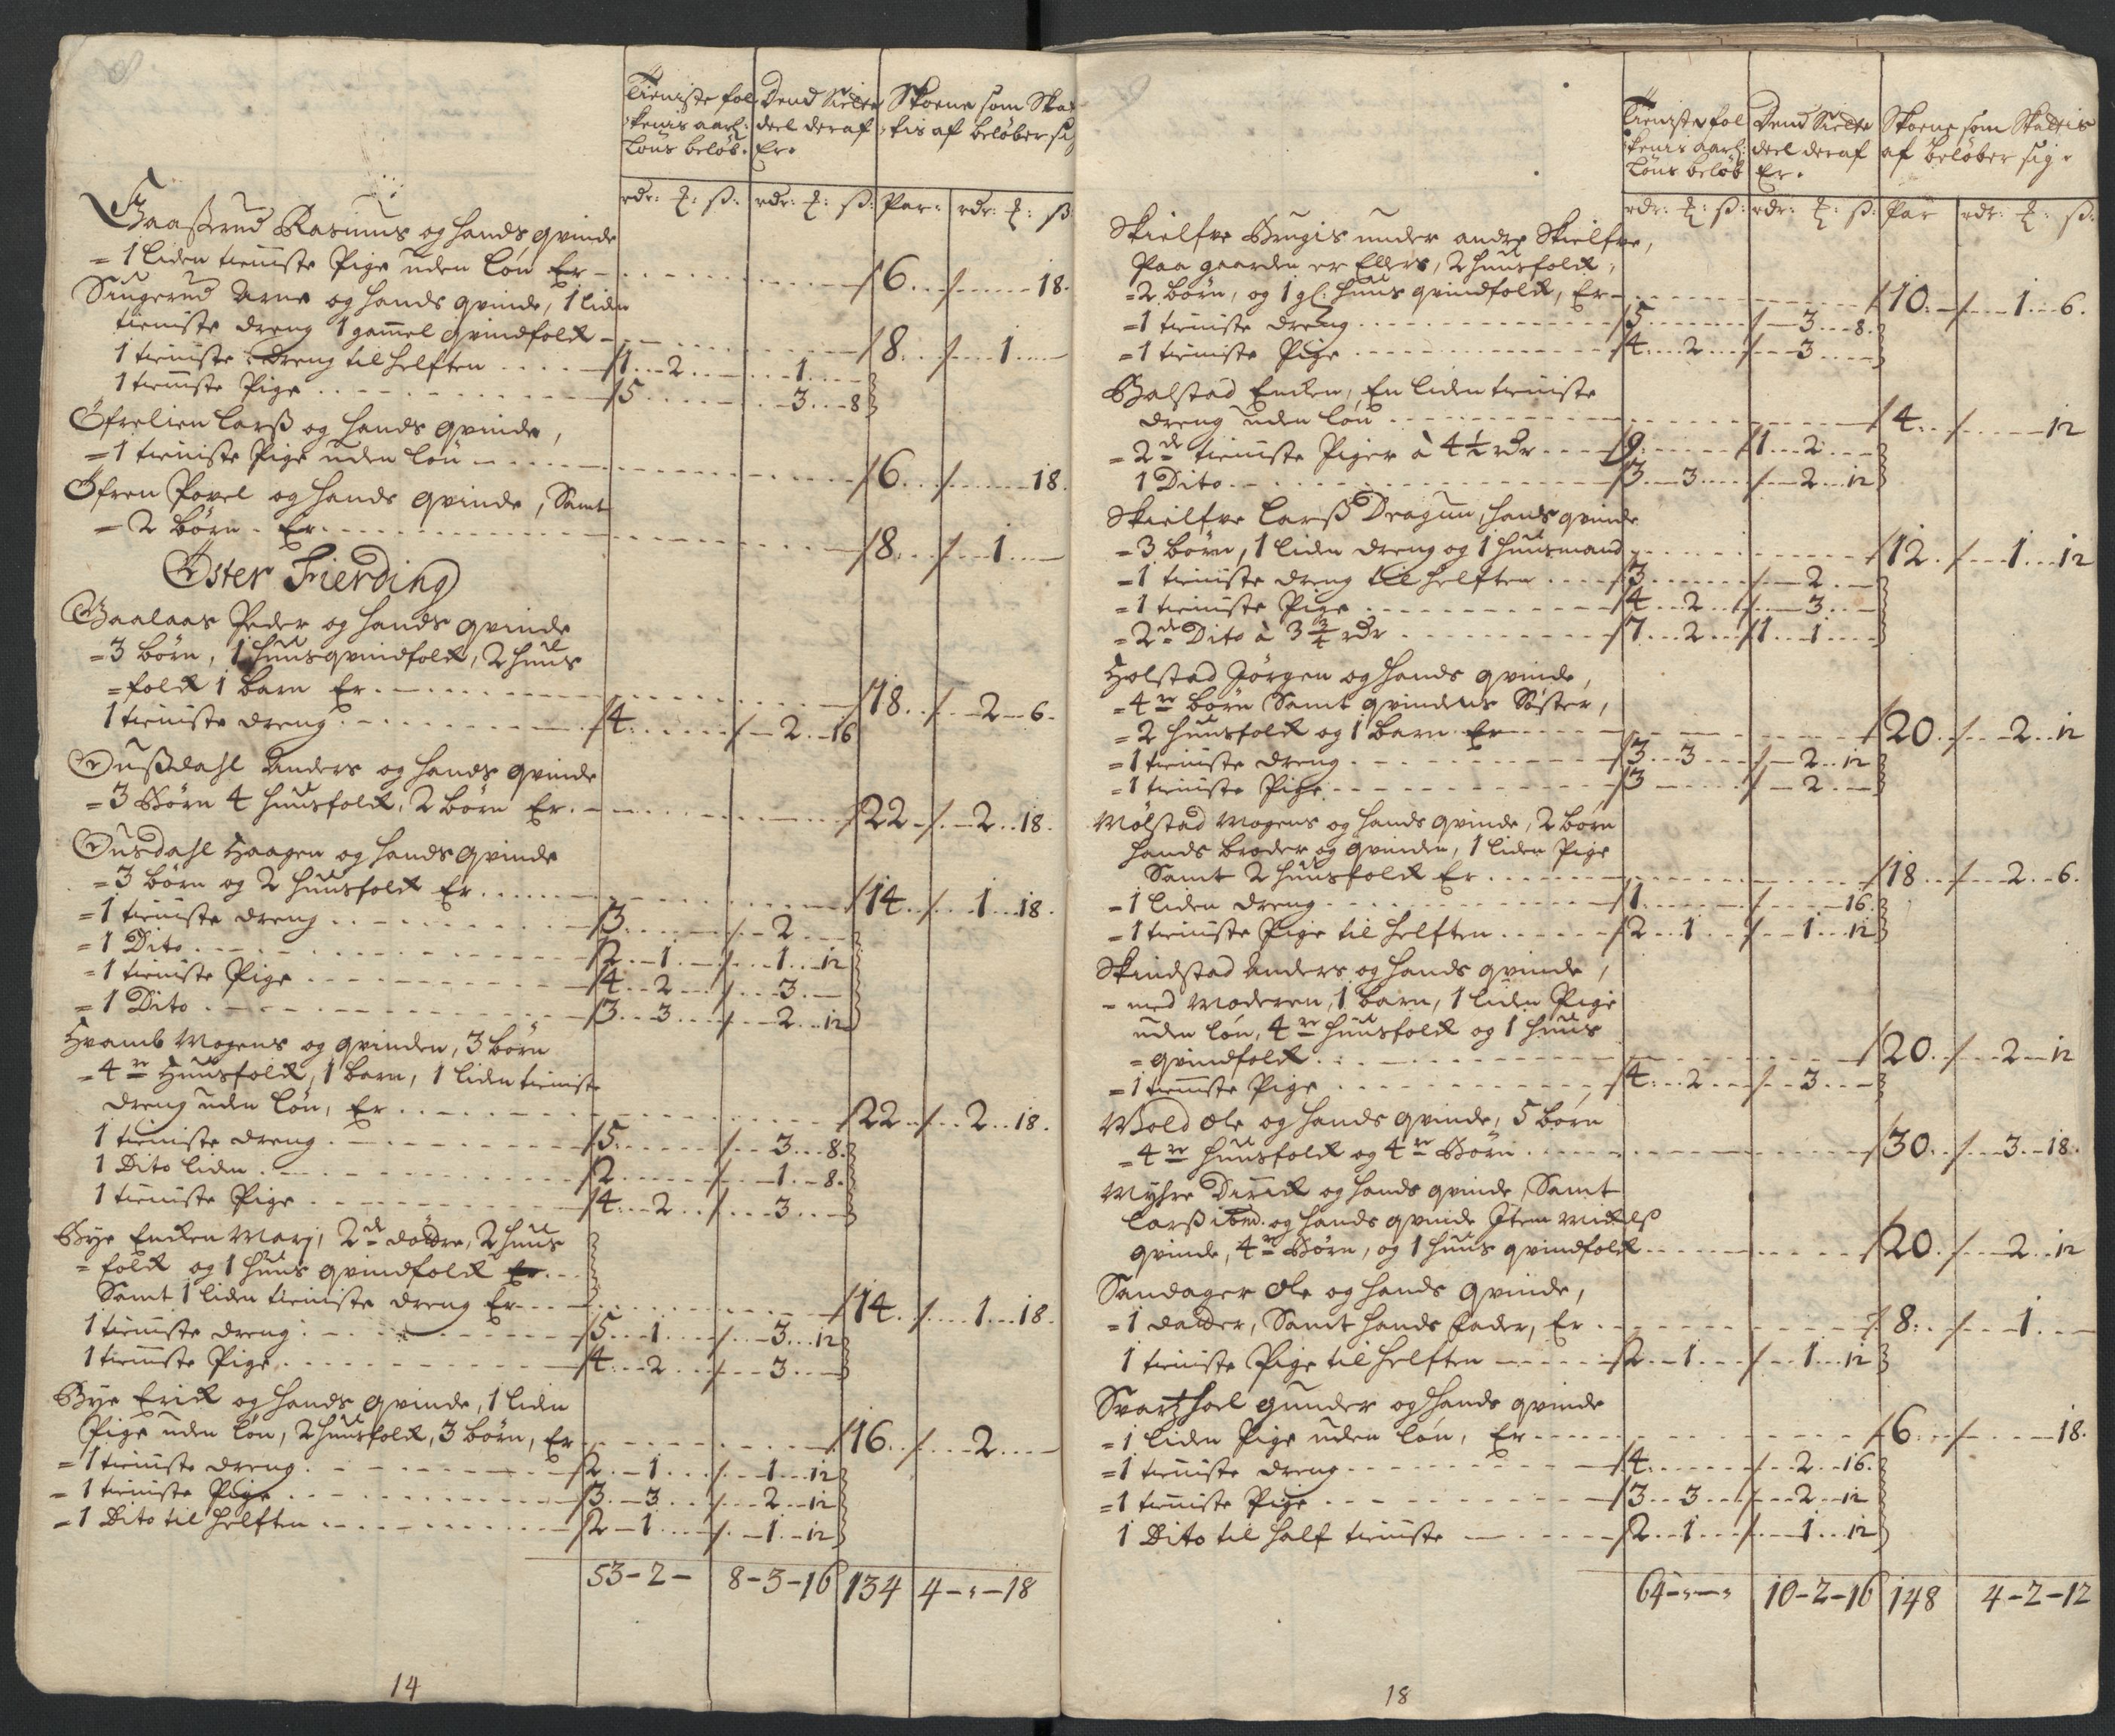 Tieniste fol Dend Siette Skoene som Ska
kenis aarl: deel deraf tis af beløber sig
Løns beløb. Er.
rdr: ß: rdr: ß: Par: rdr: ß:
Gaaßerud Rasmus og hands qvinde
= 1 liden tieniste Pige uden løn Er - 6 18.
Singerud Arne og hands qvinde, 1 liden
tieniste dreng 1 gamel qvindfolk - 8 1
1 tieniste dreng til helften 1 2 1
1 tieniste Pige 5 3 8
Öfrelien Larß og hands qvinde,
= 1 tieniste Pige uden løn 6 18.
Öfren Povel og hands qvinde, Samt
= 2 børn. Er 8 1
Öster Fierding
Gaalaas Peder og hands qvinde
= 3 børn, 1 huusqvindfolk, 2 huus
= folk 1 barn Er 18 2 6.
1 tieniste dreng 4 2 16
Oußdahl Anders og hands qvinde
= 3 Børn 4 huusfolk, 2 børn Er. 22 2 18.
Ousdahl Haagen og hands qvinde
= 3 børn og 2 huusfolk Er 14 1 18.
= 1 tieniste dreng 3 2
= 1 Dito 2 1 1 12
= 1 tieniste Pige 4 2 3
= 1 Dito 3 3 2 12
Hvamb Mogens og qvinden, 3 børn
= 4re Huusfolk, 1 barn, 1 liden tieniste
dreng uden løn, Er 22 2 18.
1 tieniste dreng 5 3 8.
1 Dito liden 2 1 8.
1 tieniste Pige 4 2 3
Bye Enken Mari, 2de døtre, 2 huus
= folk og 1 huus qvindfolk
Samt 1 liden tieniste dreng Er 14 1 18.
1 tieniste dreng 5 1 3 12
1 tieniste Pige 4 2 3
Bye Erick og hands qvinde, 1 liden
Pige uden løn, 2 huusfolk, 3 børn, Er 16 2
= 1 tieniste dreng 2 1 1 12
= 1 tieniste Pige 3 3 2 12
= 1 Dito til helften 2 1 1 12
53-2- 8-3-16 134 4-"-18
14
Tieniste fol Dend Siette Skoene som Skattis
kenis aarl: deel deraf af beløber sig.
Løns beløb Er.
rdr: ß: rdr: ß: Par rdr: ß:
Skielfve Brugis under andre Skielfve,
Paa gaarden er Ellers, 2 huusfolk,
= 2 børn, og 1 gl: huus qvindfolk, Er 10 1 6.
= 1 tieniste dreng 5 3 8.
= 1 tieniste Pige 4 2 3
Balstad Enken, En liden tieniste
dreng uden løn 4 12
= 2de tieniste Piger à 4½ rdr 9 1 2
1 Dito 3 3 2 12
Skielfve Larß Dragun, hands qvinde
= 3 børn, 1 liden dreng og 1 huusmand 12 1 12
= 1 tieniste dreng til helften 3 2
= 1 tieniste Pige 4 2 3
= 2de Dito à 3¾ rdr 7 2 1 1
Holstad Jørgen og hands qvinde,
= 4re børn Samt qvindens Søster,
= 2 huusfolk og 1 barn Er 20 2 12
= 1 tieniste dreng 3 3 2 12
= 1 tieniste Pige 3 2
Mølstad Mogens og hands qvinde, 2 børn
hands broder og qvinden, 1 liden Pige
Samt 2 huusfolk Er 18 2 6.
= 1 liden dreng 1 16.
= 1 tieniste Pige til helften 2 1 1 12
Skindstad Anders og hands qvinde,
= med Moderen, 1 barn, 1 liden Pige
uden løn, 4re huusfolk og 1 huus
= qvindfolk 20 2 12
= 1 tieniste Pige 4 2 3
Wold Ole og hands qvinde, 5 børn
= 4re huusfolk og 4re Børn 30 3 18.
Myhre Dirick og hands qvinde, Samt
Larß ibm. og hands qvinde Item Mickelß
qvinde, 4re Børn, og 1 huus qvindfolk 20 2 12
Sandager Ole og hands qvinde,
= 1 datter, Samt hands fader, Er 8 1
1 tieniste Pige til helften 2 1 1 12
Svartzhoel Gunder og hands qvinde
= 1 liden Pige uden løn, Er 6 18.
= 1 tieniste dreng 4 2 16.
= 1 tieniste Pige 3 3 2 12
1 Dito til half tieniste 2 1 1 12
64-"-" 10-2-16 148 4-2-12
18